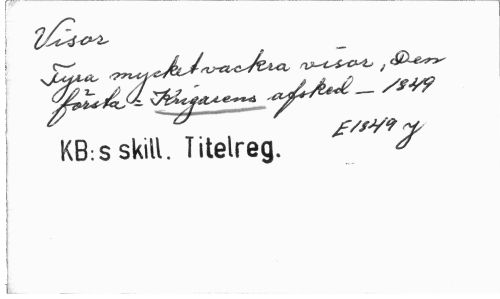 Visor
Fyra mycket vackra visor, Den
första = Krigarens afsked — 1849
E1849 y
KB:s skill. Titelreg.